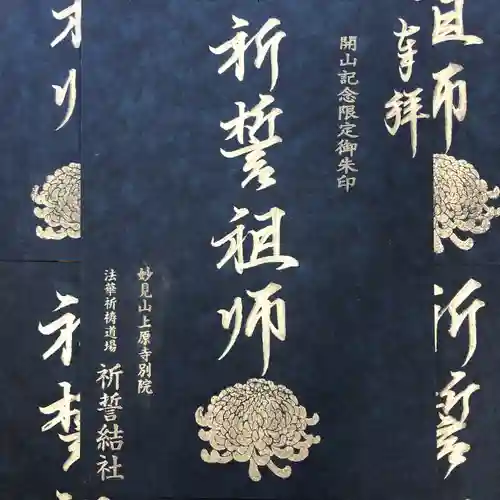 奉拝
開山記念限定御朱印
祈誓祖師
妙見山上原寺別院
法華祈祷道場
祈誓結社
祖師
祈誓
祈誓